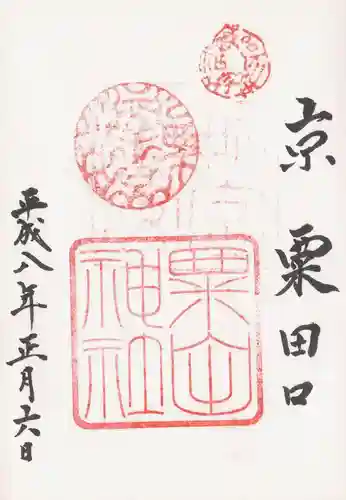 京 粟田口
粟田
神社
平成八年正月六日